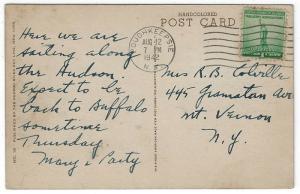 HANDCOLORED
POST CARD
POUGHKEEPSIE
AUG 12
7 PM
1942
N.Y.
Here we are
sailing along
the Hudson.
Expect to be
back to Buffalo
sometime
Thursday
Mary & Party
Mrs R.B. Colville
445 Gramatan Ave
Mt. Vernon
N.Y.